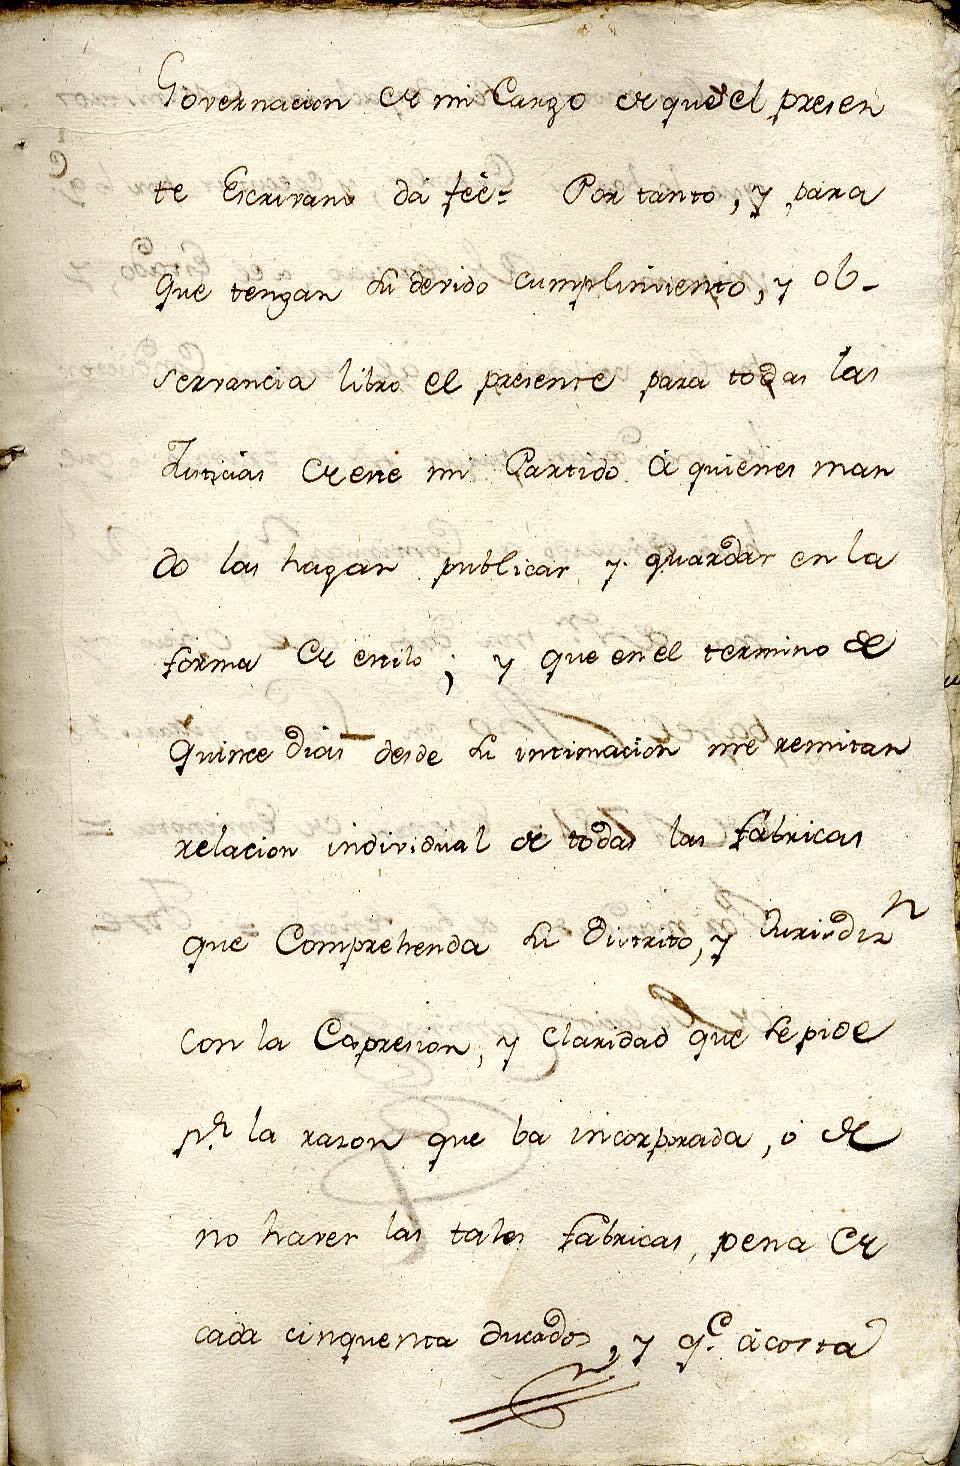 Governacion de mi Cargo de que el presen
te Escrivano dà feè= Por tanto, y para
que tengan su devido cumplimiento, y ob-
servancia libro el presente para todas las
Justicias de ese mi Partido â quienes man
do las hagan publicar y guardar en la
forma de estilo; y que en el termino de
quince dias desde su intimacion me remitan
relacion individual de todas las fabricas
que Comprehenda su distrito, y Jurisdizn
con la Expresion, y claridad que se pide
pr. la razon que ba incorporada, ò de
no haver las tales fabricas, pena de
cada cinquenta ducados, y qe. â costa